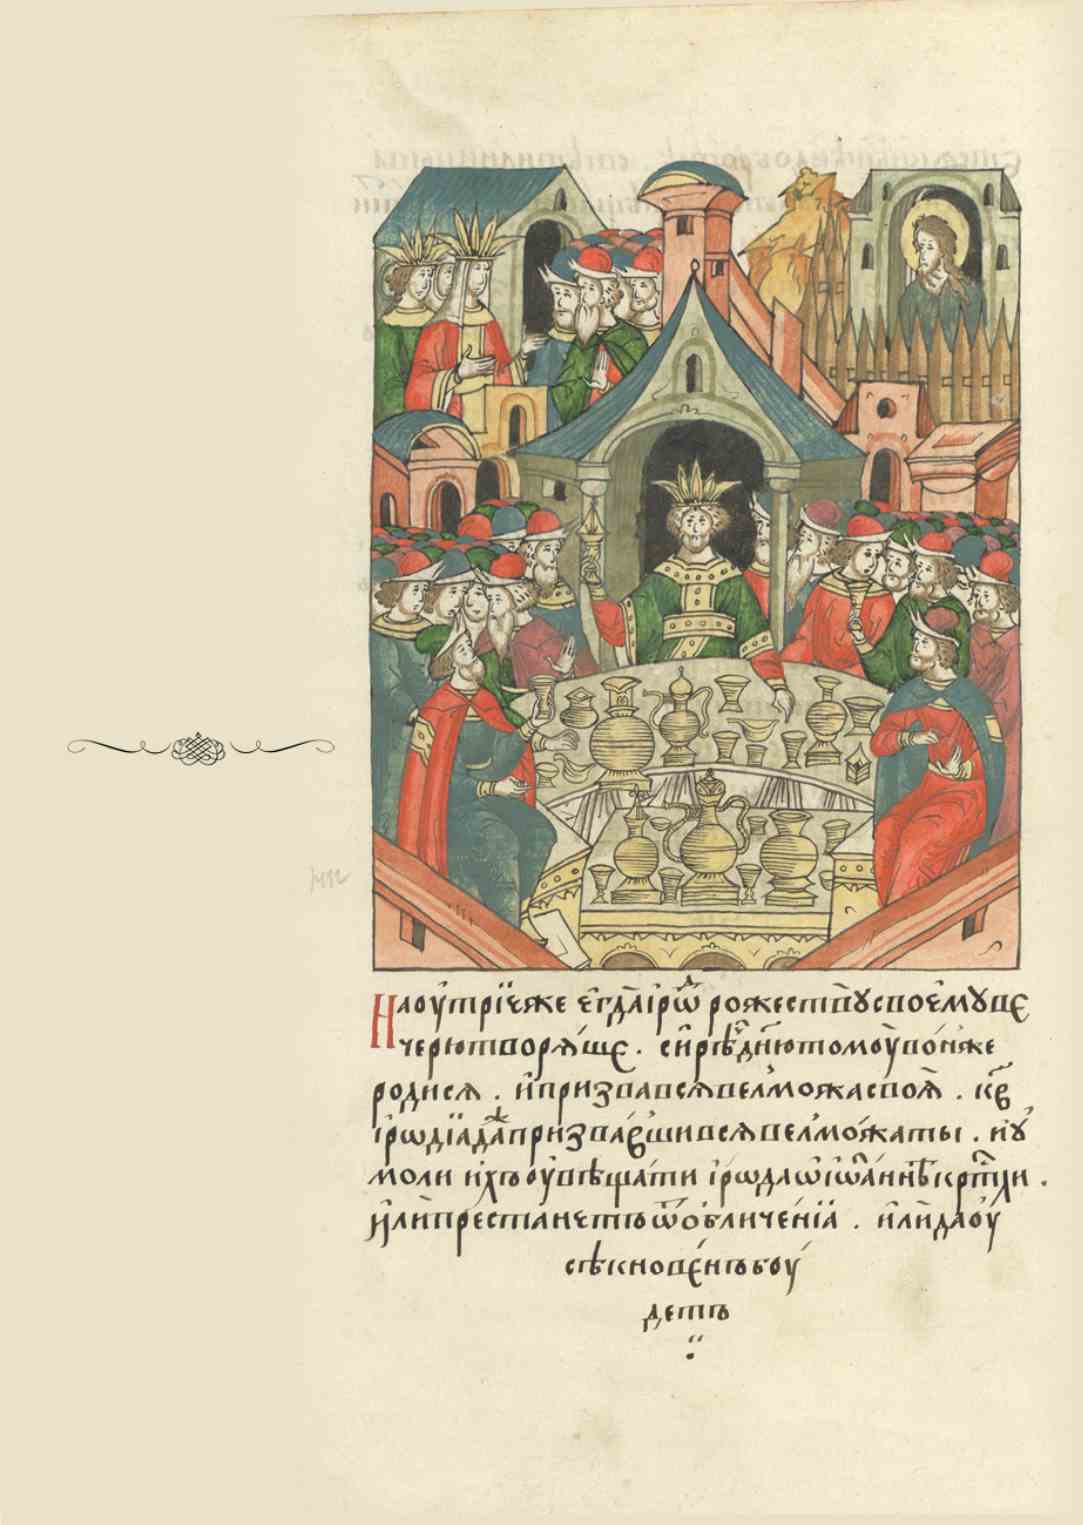 Наоу́трїеѧже є҆гда̀і҆рѡⷣ рожествꙋ̀своє҆мꙋвє
черютворѧ́щє . си́рѣⷱ҇дн҃ютомоу̀во́ньже
родисѧ . и҆призвавсѧвелможасвоѧ̀ . къ
і҆рѡдїадаⷤпризва́вшивсѧвелмо́жаты . иꙋ҆
моли ихъоу҆вѣща́ти і҆рѡдаѡ҆і҆ѡа́ннѣкрⷭ҇тли .
и҆лѝпрестанетъѿѡбличе́нїꙗ . и҆лѝдаоу҆
сѣкнове́нъбоу́
детъ